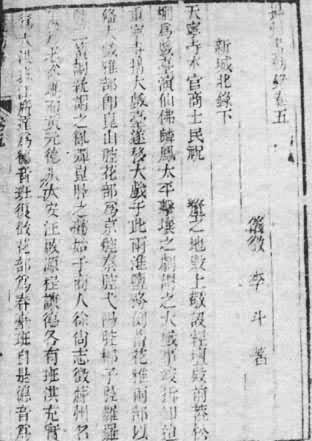 揚州畫舫錄卷五
儀徵 李斗 著
新城北錄下
天寧寺本官商士民祝釐之地殿上敬設經壇殿前蓋松
棚為戲臺演仙佛麟鳳太平擊壤之劇謂之大戲事竣拆卸迨
重寧寺構大戲臺遂移大戲于此兩淮鹽務例蓄花雅兩部以
備大戲雅部即崑山腔花部為京腔秦腔弋陽腔梆子腔羅羅
腔二簧調統謂之亂彈崑腔之勝始于商人徐尚志徵蘇州名
優為老徐班而黃元德張大安汪啟源程謙德各有班洪充實
為大洪班江廣達為德音班復徵花部為春臺班自是德音為